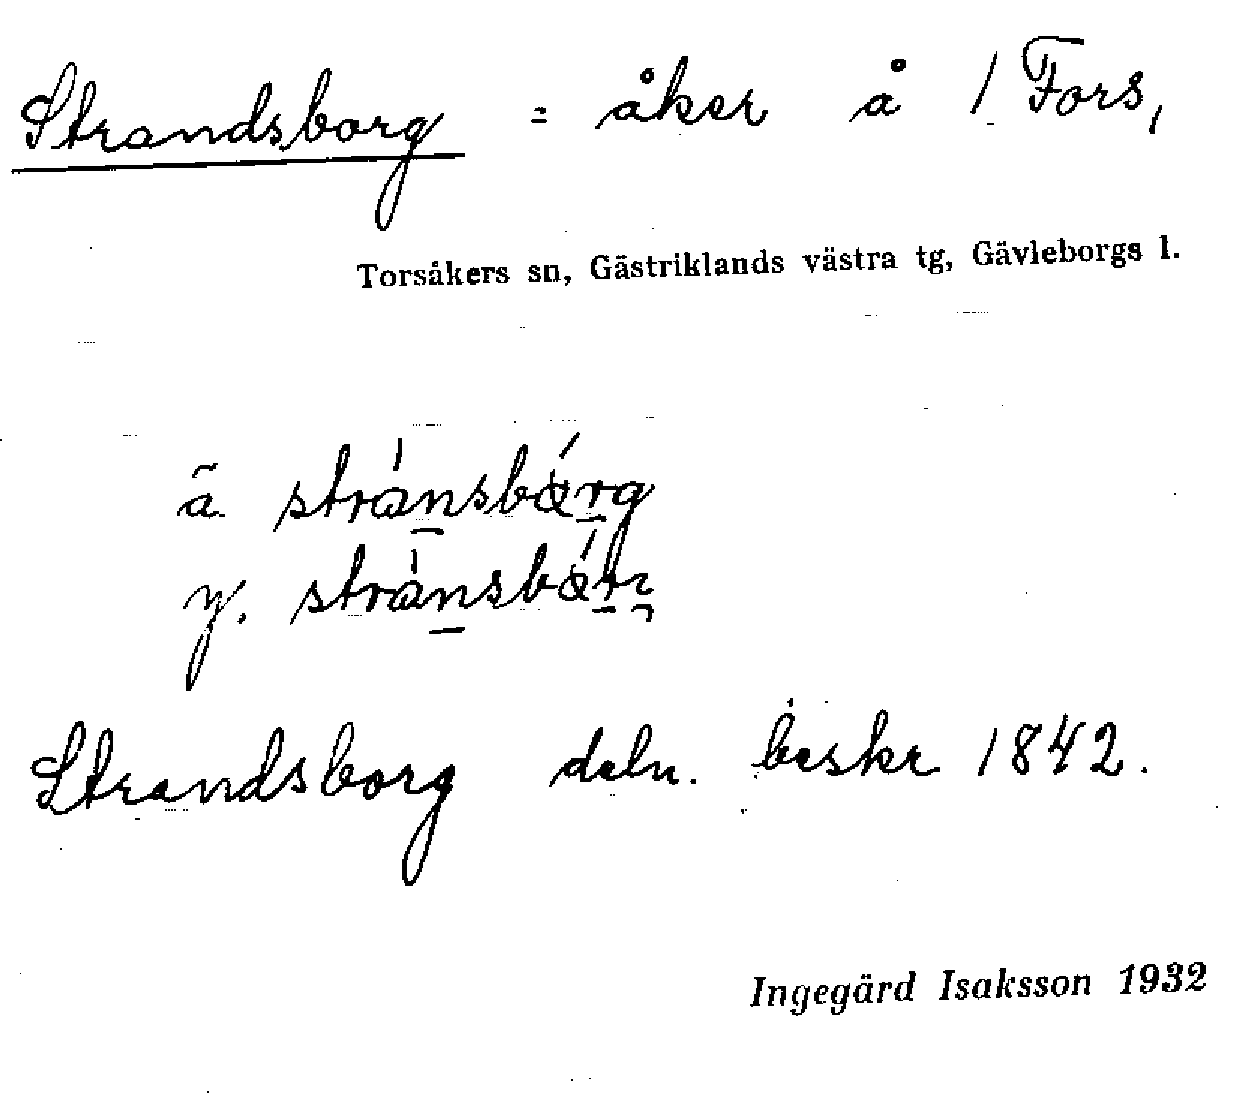 Strandsborg = åker å 1 Fors,
Torsåkers sn, Gästriklands västra tg, Gävleborgs l.
ä strànsbárg
y. strànsbár
Strandsborg deln. beskr 1842.
Ingegärd Isaksson 1932